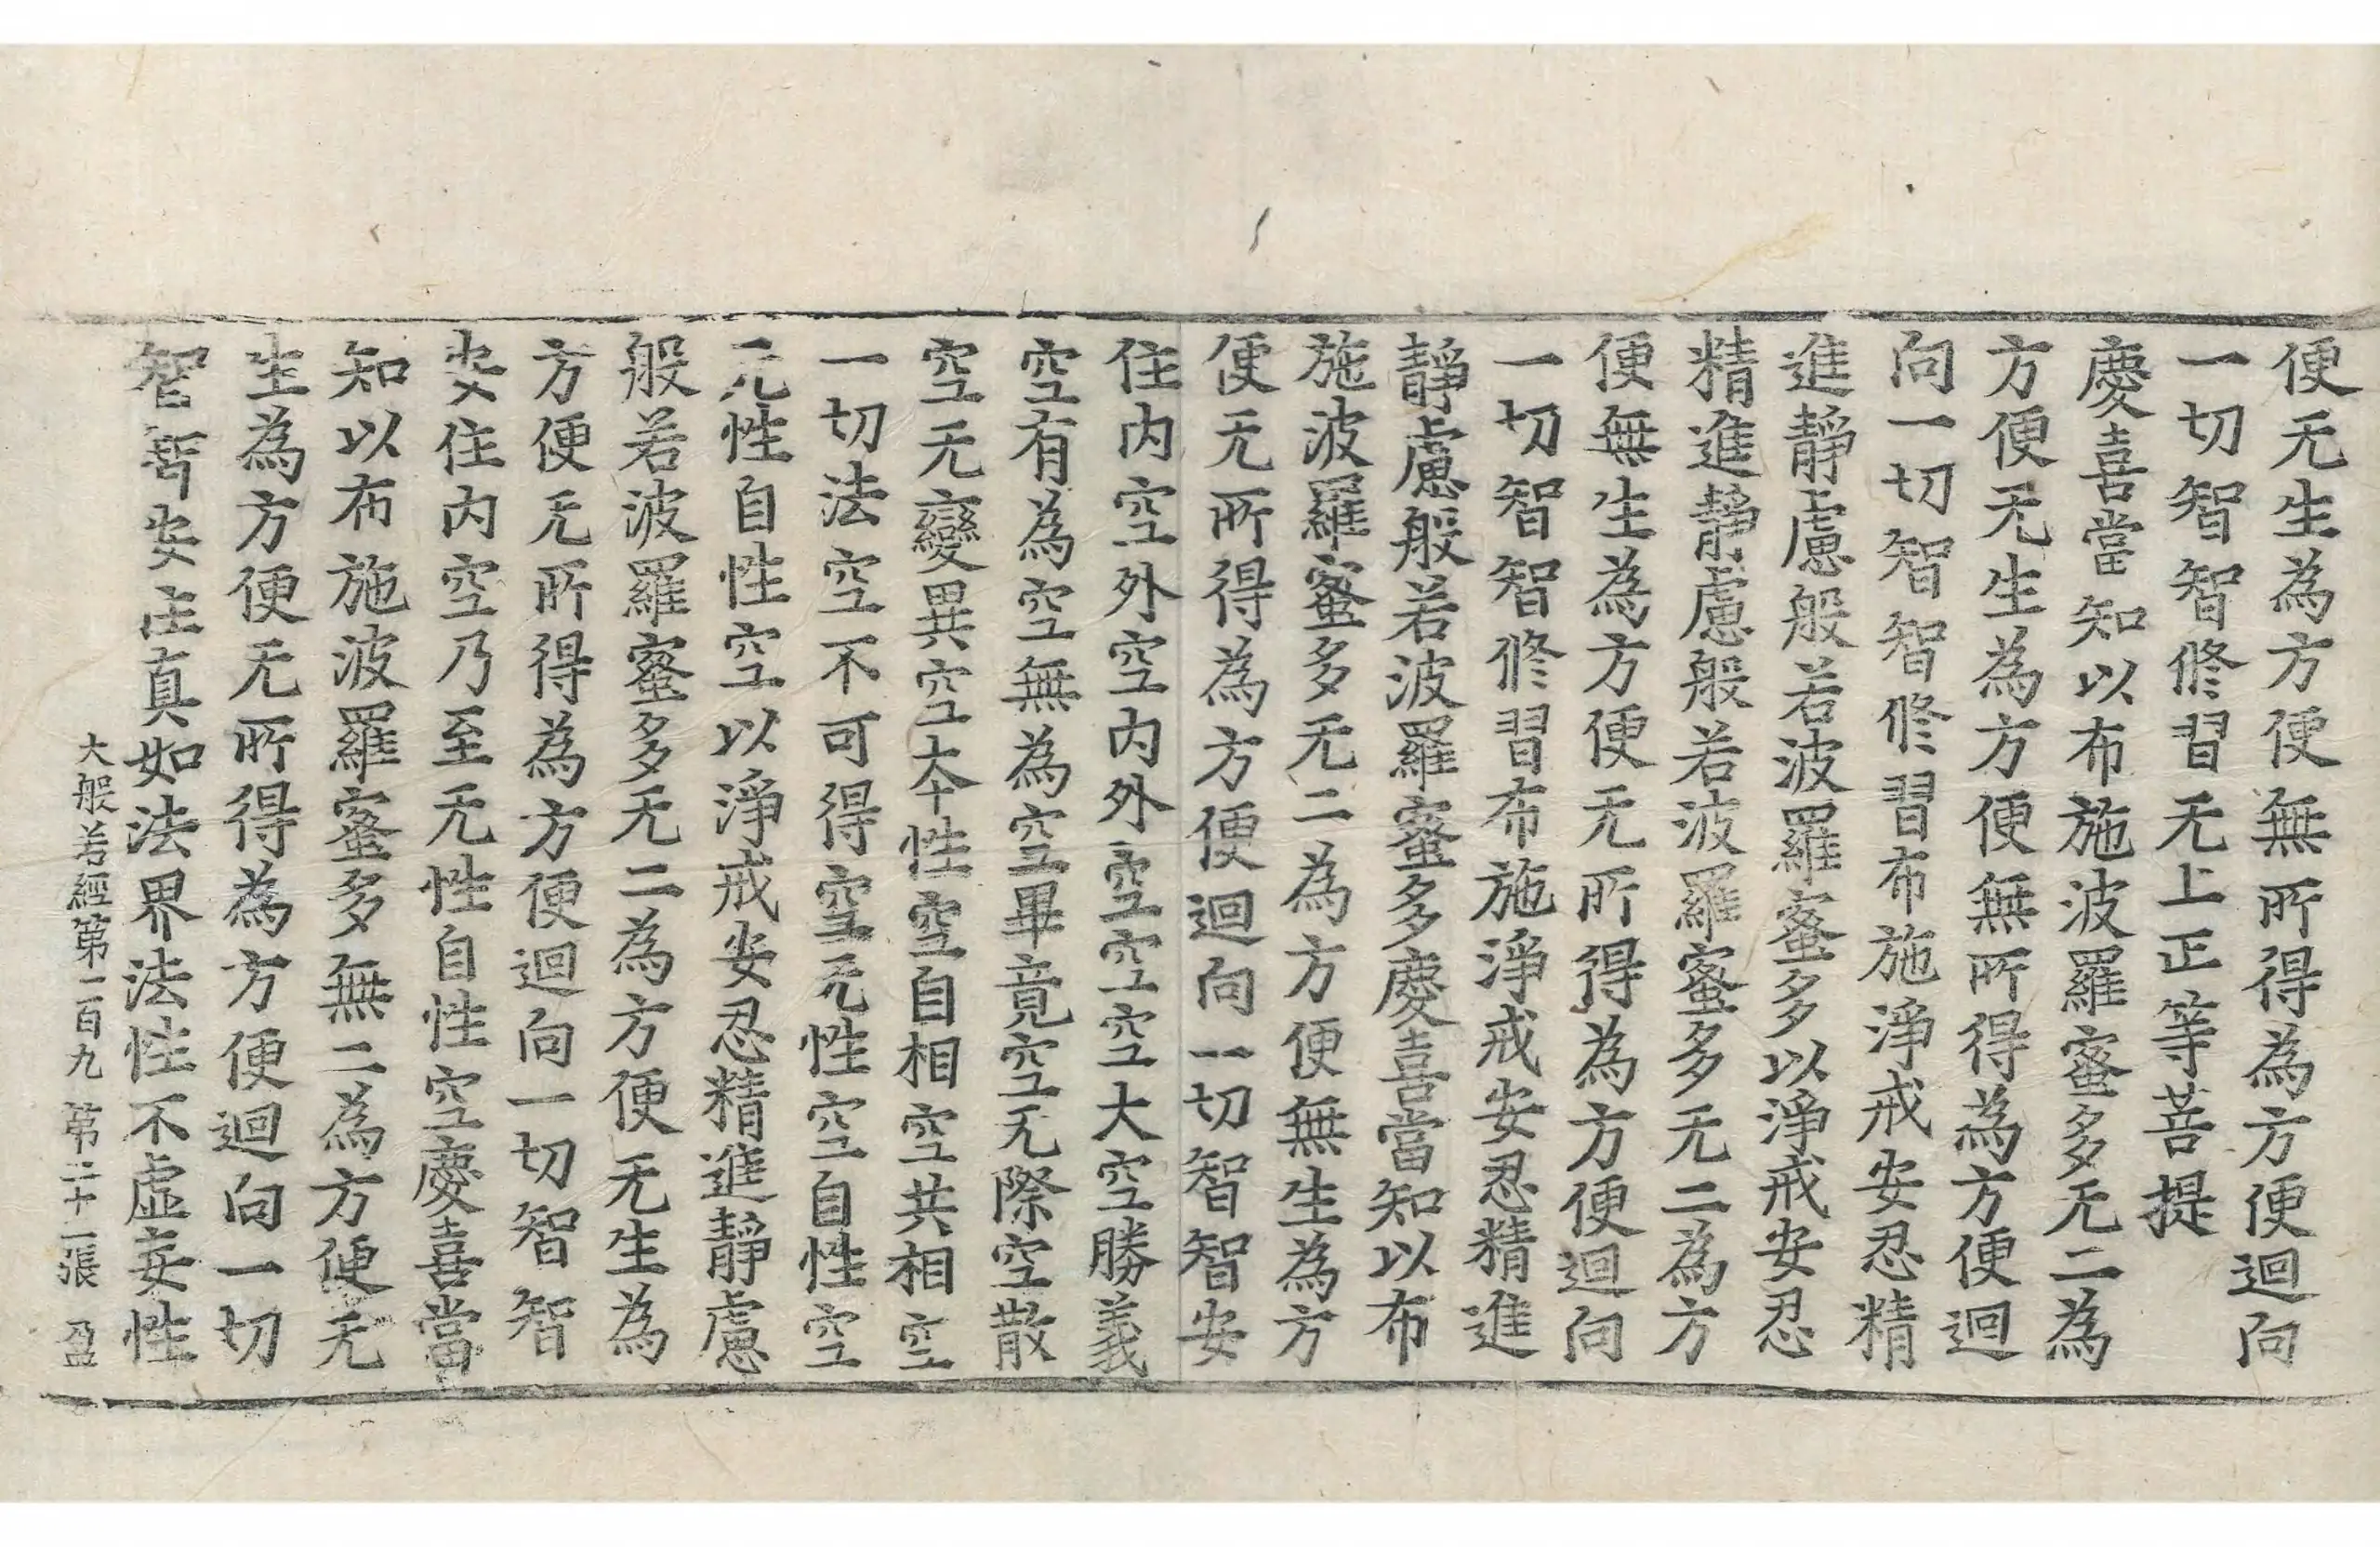 便无生為方便無所得為方便迴向
一切智智修習无上正等菩提
慶喜當知以布施波羅蜜多无二為
方便无生為方便無所得為方便迴
向一切智智修習布施淨戒安忍精
進靜慮般若波羅蜜多以淨戒安忍
精進靜慮般若波羅蜜多无二為方
便無生為方便无所得為方便迴向
一切智智修習布施淨戒安忍精進
靜慮般若波羅蜜多慶喜當知以布
施波羅蜜多无二為方便無生為方
便无所得為方便迴向一切智智安
住内空外空内外空空空大空勝義
空有為空無為空畢竟空无際空散
空无變異空本性空自相空共相空
一切法空不可得空无性空自性空
无性自性空以淨戒安忍精進靜慮
般若波羅蜜多无二為方便无生為
方便无所得為方便迴向一切智智
安住内空乃至无性自性空慶喜當
知以布施波羅蜜多無二為方便无
生為方便无所得為方便迴向一切
智智安住真如法界法性不虛妄性
大般若經第一百九 第二十二張 盈